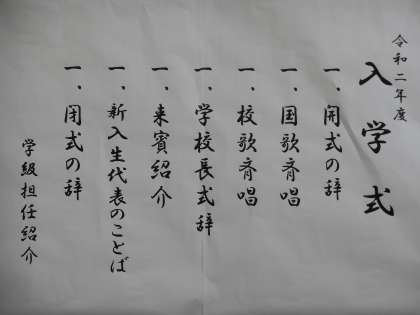 令和二年度
入学式
一、開式の辞
一、国歌斉唱
一、校歌斉唱
一、学校長式辞
一、来賓紹介
一、新入生代表のことば
一、閉式の辞
学級担任紹介